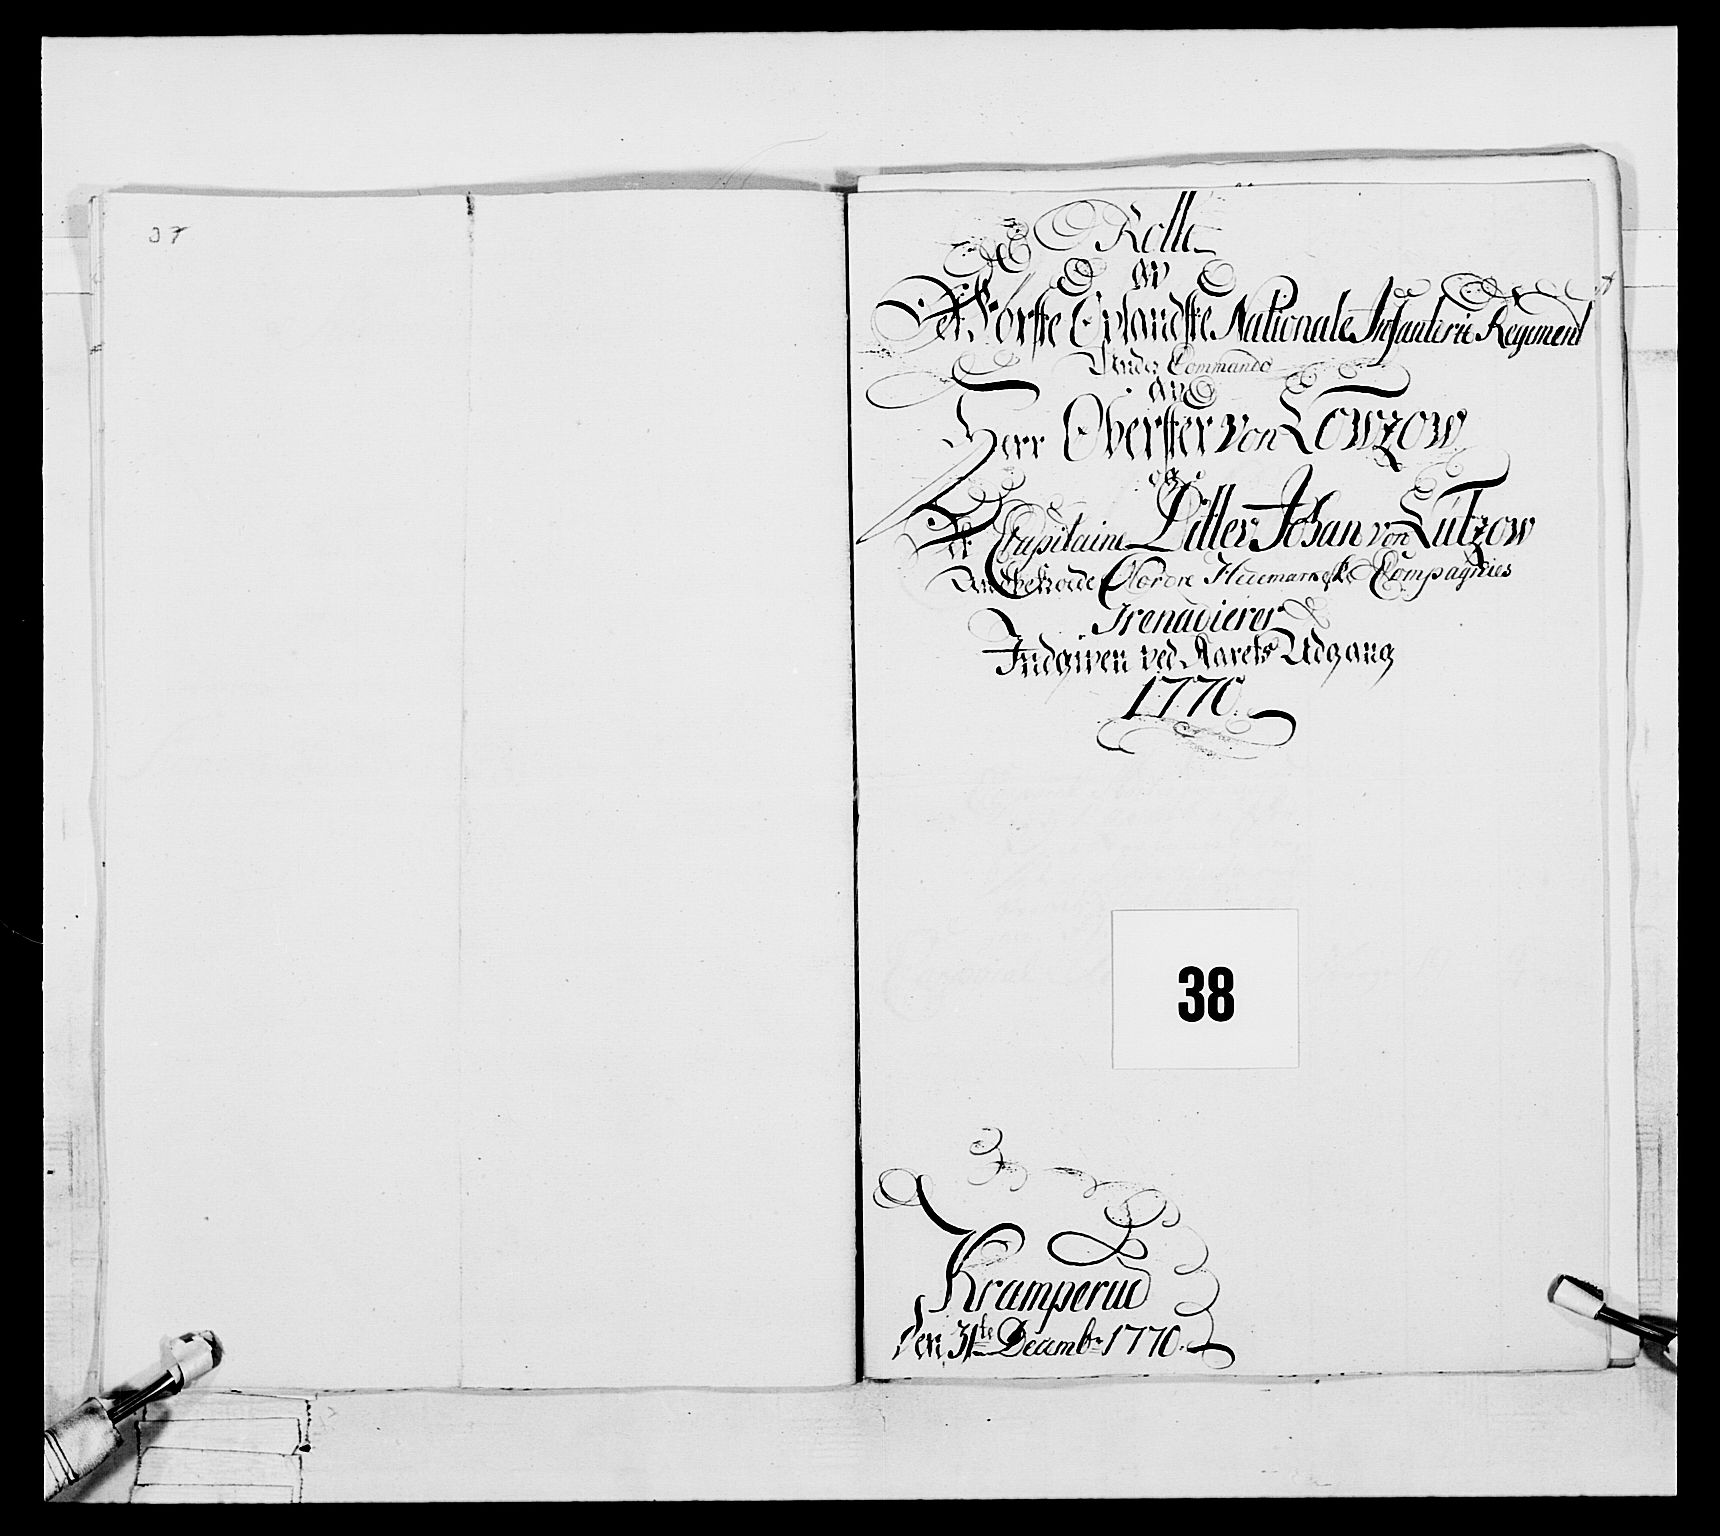 37
Rolle
av
Det Førſte Oplandſke Nationale Infanterie Regiment
Under Commando
av
Herr Oberſter von Lowzow
og
Det Capitaine Ditlev Johan von Lützow
Nordre Compagnies
Grenadierer
Indgiven ved Aarets Udgang
1770
38
Kramperud
den 31te Decembr 1770.